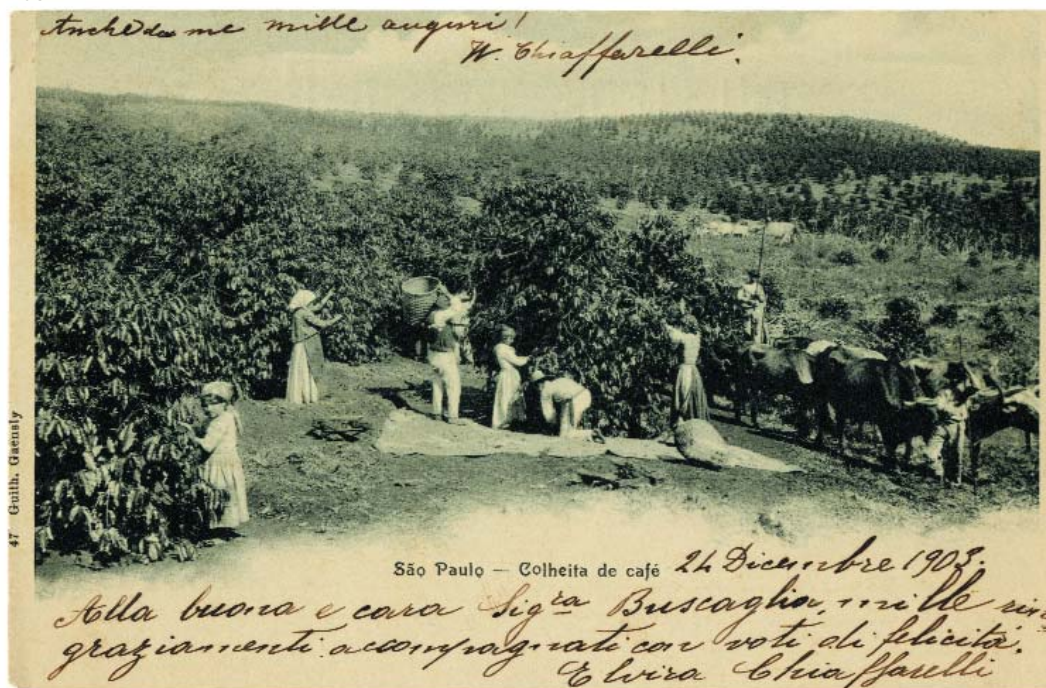 Anche da me mille auguri!
W. Chiaffarelli.
47 Guilh. Gaensly
São Paulo — Colheita de café
24 Dicembre 1903.
Alla buona e cara Sigra Buscaglia, mille rin
graziamenti accompagnati con voti di felicità.
Elvira Chiaffarelli